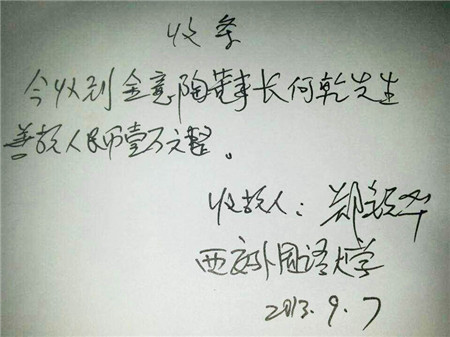 收条
今收到金意陶董事长何乾先生
善款人民币壹万元整。
收款人：郑
西安外国语大学
2013.9.7